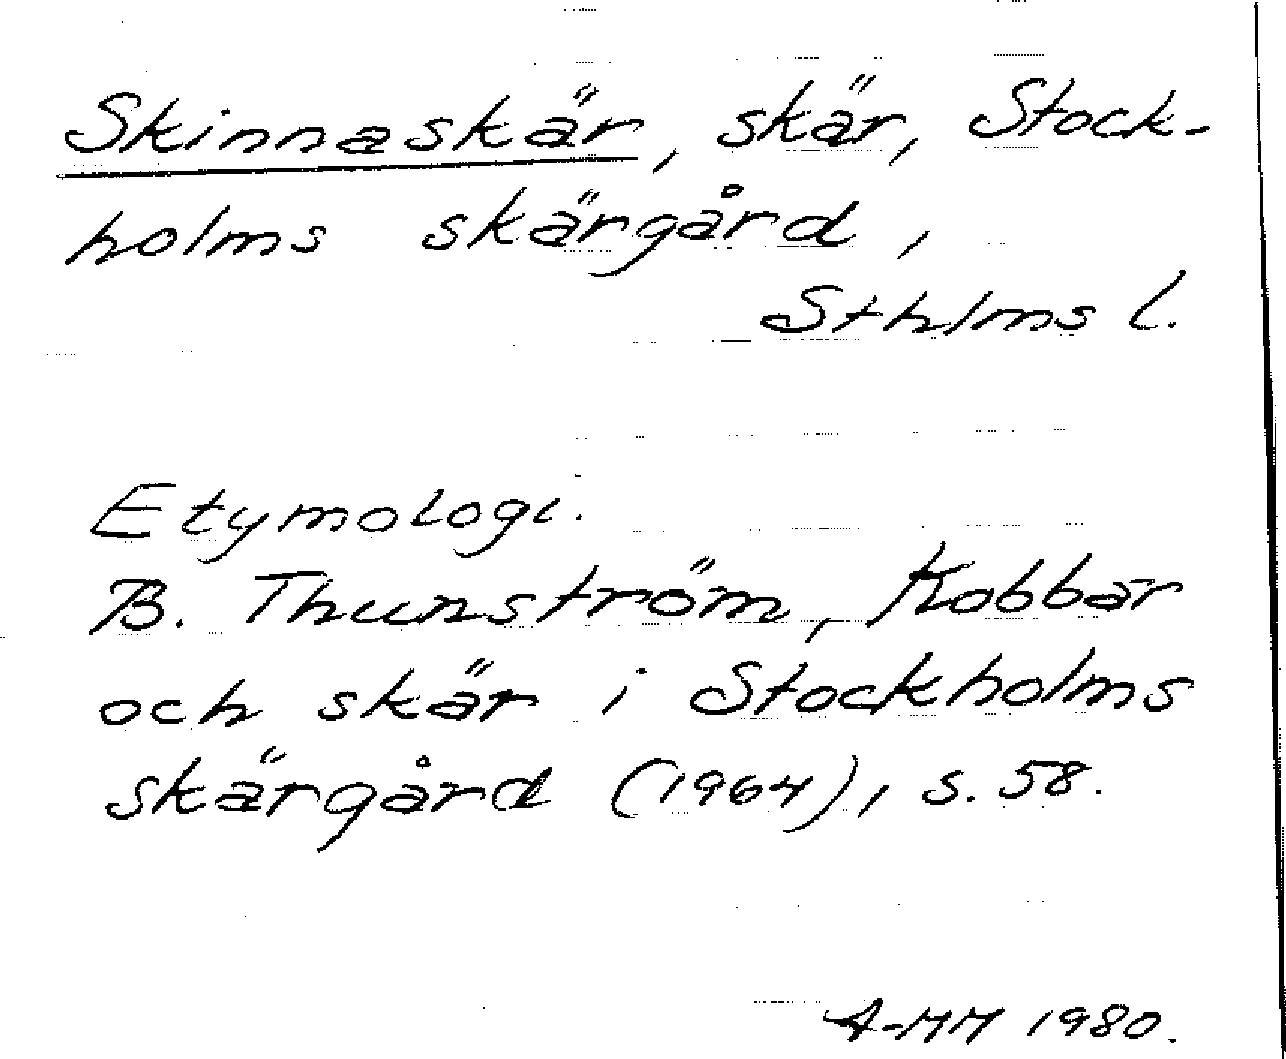 Skinnaskär, skär, Stock-
holms skärgård,
Sthlms l.
Etymologi.
B. Thunström, Kobbar
och skär i Stockholms
skärgård (1964), s. 58.
A-MM 1980.